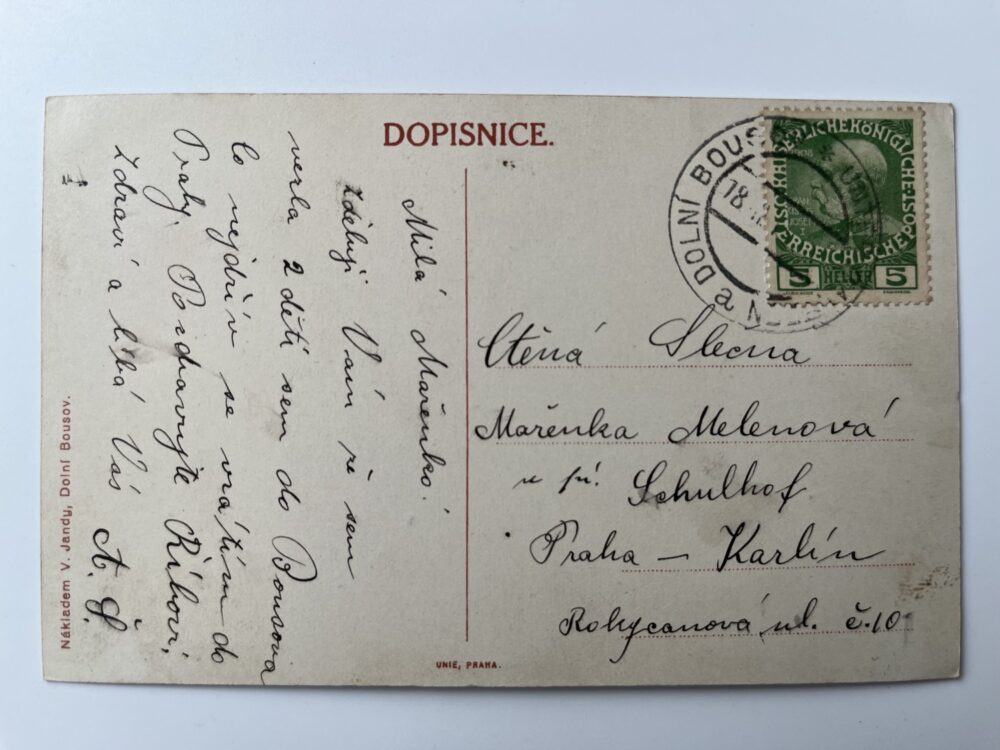 DOPISNICE.
Milá Mařenko!
Zděluji Vám že sem
vezla 2 děti sem do Bousova
Co nejdřív se vrátím do
Prahy. Pozdravujte
Zdraví a líbá Vás
A. Š.
DOLNÍ BOUSOV
18
KAISERLICHE KÖNIGLICHE
ÖSTERREICHISCHE POST
1908
5 HELLER 5
Ctěná Slecna
Mařenka Melenová
u pí. Schulhof
Praha – Karlín
Rokycanová ul. č.10
Nákladem V. Jandy, Dolní Bousov.
UNIE, PRAHA.